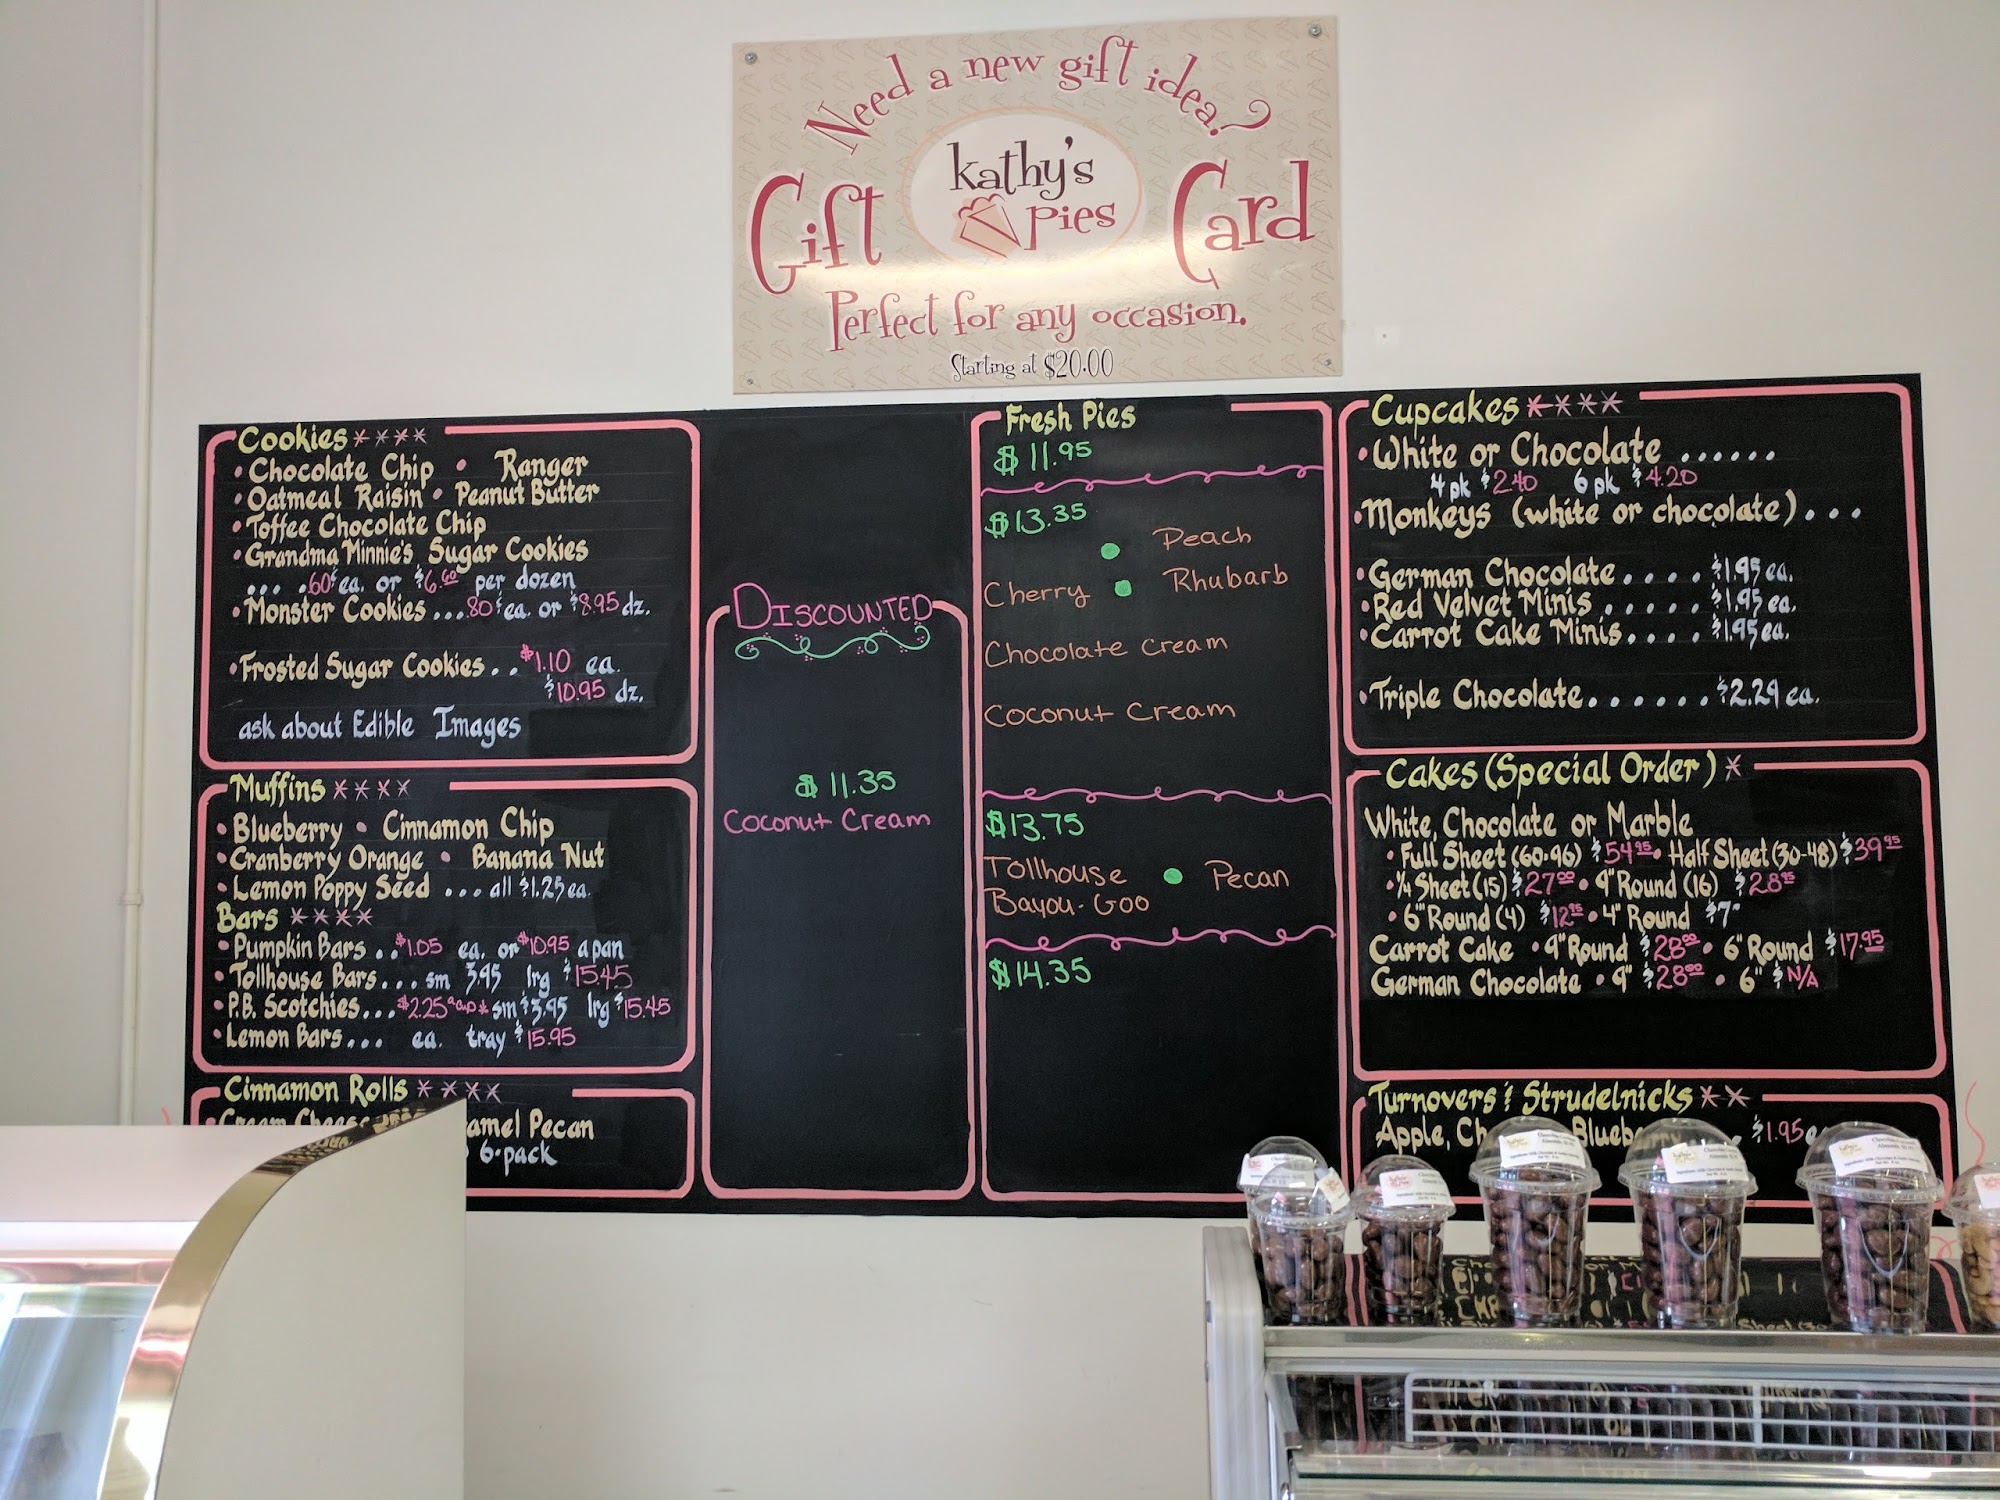 Need a new gift idea?
Gift kathy's pies Card
Perfect for any occasion.
Starting at $20.00
Cookies ****
• Chocolate Chip • Ranger
• Oatmeal Raisin • Peanut Butter
• Toffee Chocolate Chip
• Grandma Minnie's Sugar Cookies
... .60¢ ea. or $6.60 per dozen
• Monster Cookies ... .80¢ ea. or $8.95 dz.
• Frosted Sugar Cookies . . $1.10 ea.
$10.95 dz.
ask about Edible Images
Muffins ****
• Blueberry • Cinnamon Chip
• Cranberry Orange • Banana Nut
• Lemon Poppy Seed ... all $1.25 ea.
Bars ****
• Pumpkin Bars . . $1.05 ea. or $10.95 a pan
• Tollhouse Bars... sm 3.95 lrg $15.45
• P.B. Scotchies... $2.25 a cup sm $3.95 lrg $15.45
• Lemon Bars... ea. tray $15.95
Cinnamon Rolls ****
• Cream Cheese amel Pecan
6-pack
Discounted
$11.35
Coconut Cream
Fresh Pies
$11.95
$13.35
• Peach
Cherry • Rhubarb
Chocolate Cream
Coconut Cream
$13.75
Tollhouse • Pecan
Bayou-Goo
$14.35
Cupcakes ****
• White or Chocolate ......
4 pk $2.40 6 pk $4.20
• Monkeys (white or chocolate) ...
• German Chocolate .... $1.95 ea.
• Red Velvet Minis ..... $1.95 ea.
• Carrot Cake Minis.... $1.95 ea.
• Triple Chocolate...... $2.29 ea.
Cakes (Special Order) *
White, Chocolate or Marble
• Full Sheet (60-96) $54.95 • Half Sheet (30-48) $39.95
• ¼ Sheet (15) $27.00 • 9" Round (16) $28.95
• 6" Round (4) $12.95 • 4" Round $7
Carrot Cake • 9" Round $28.00 • 6" Round $17.95
German Chocolate • 9" $28.00 • 6" $N/A
Turnovers & Strudelnicks **
Apple, Ch Blueberry $1.95 e